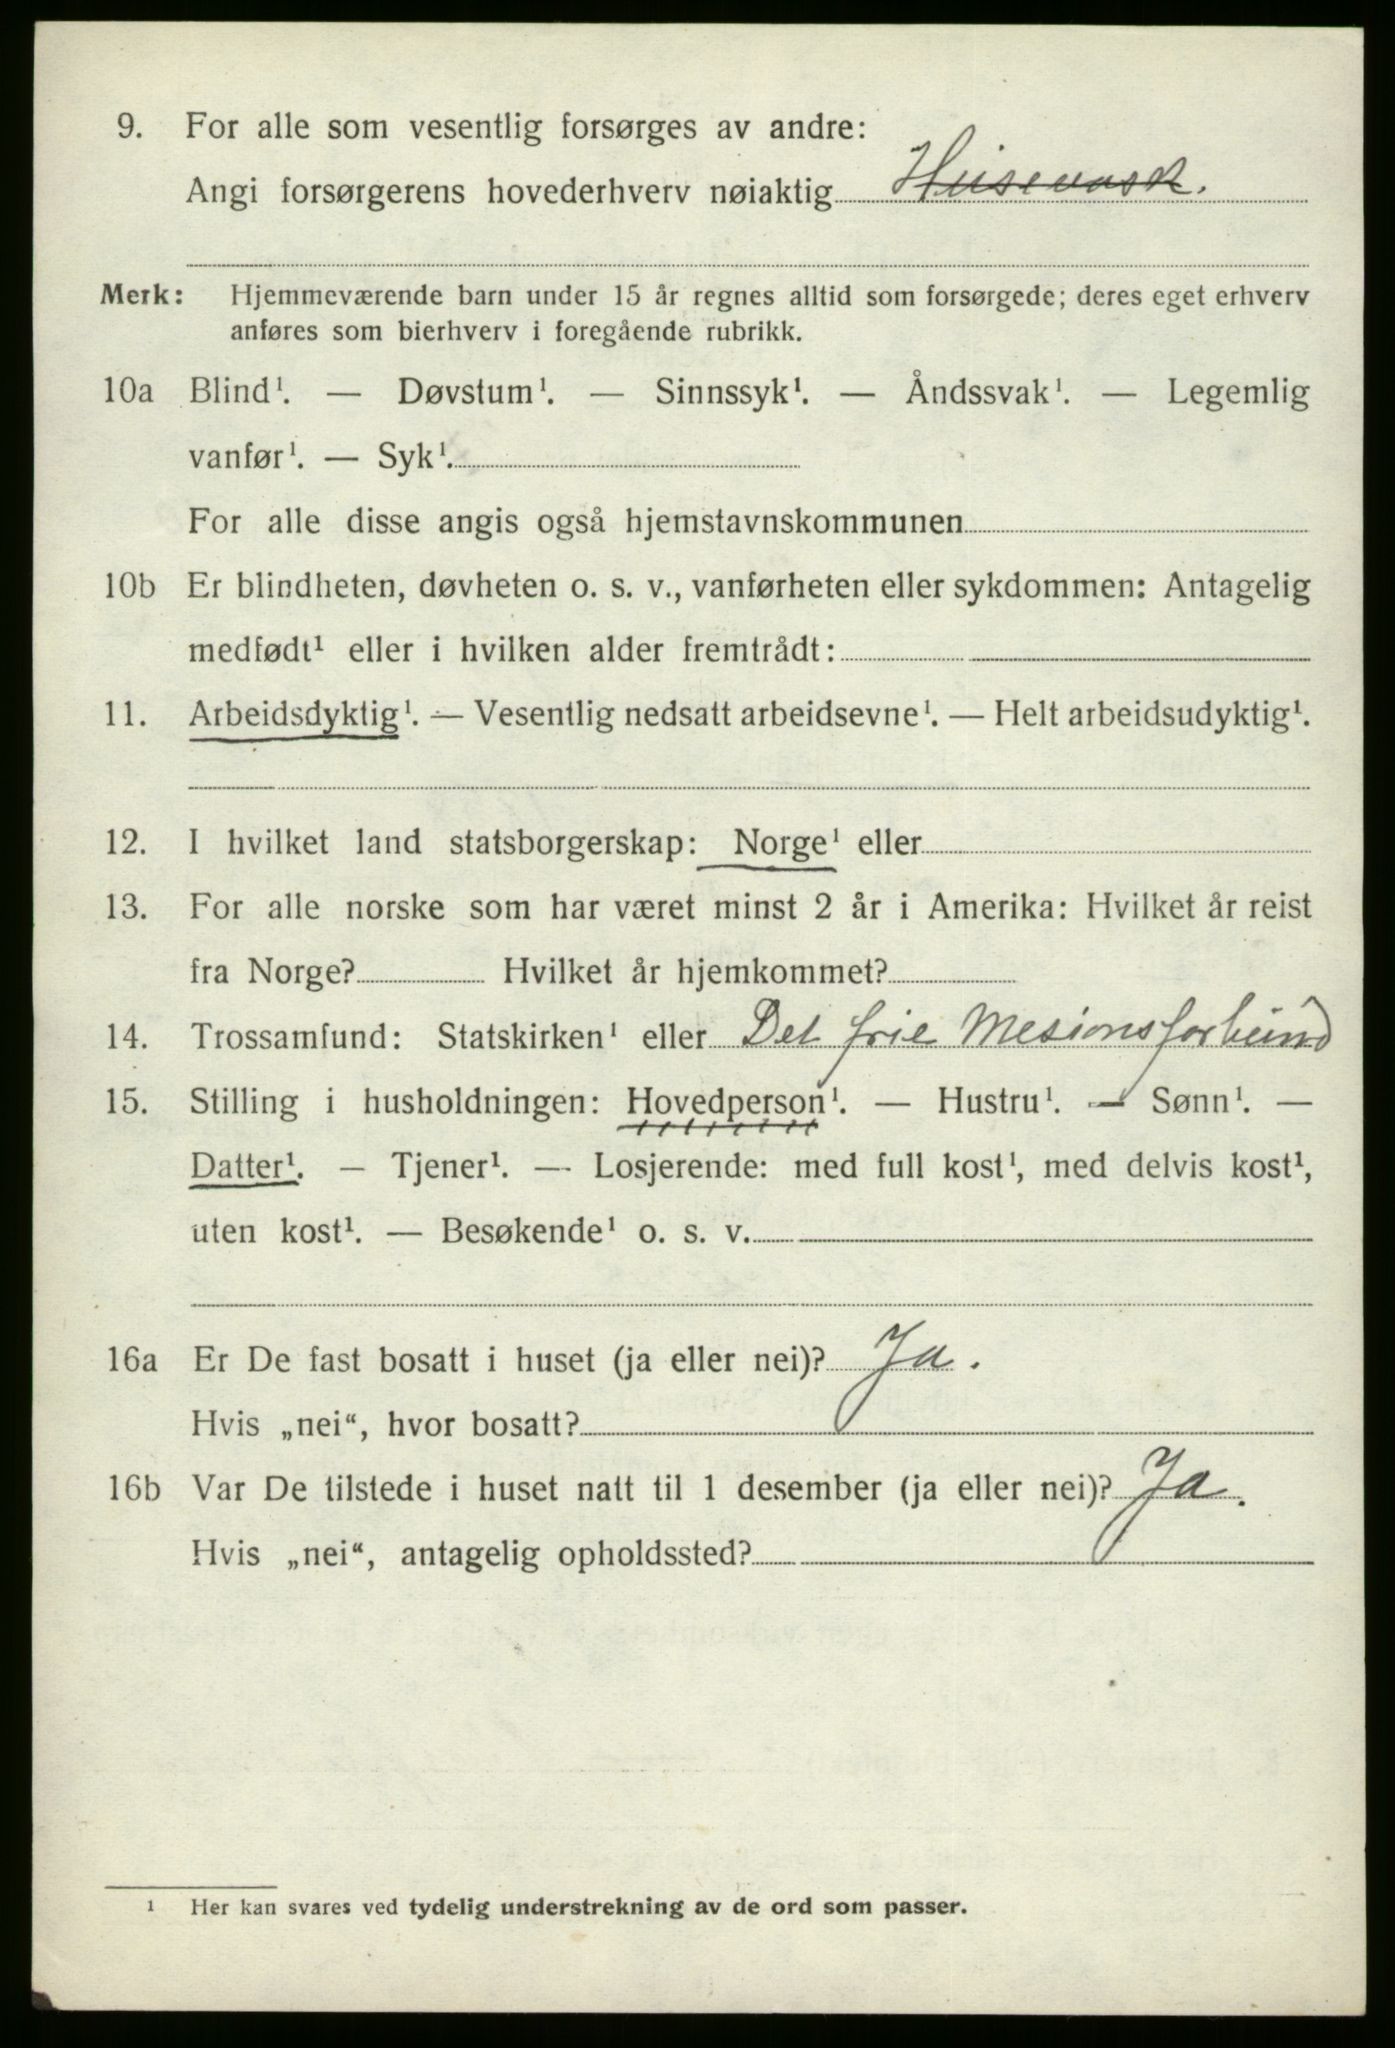 9. For alle som vesentlig forsørges av andre:
Angi forsørgerens hovederhverv nøiaktig Husevask.
Merk: Hjemmeværende barn under 15 år regnes alltid som forsørgede; deres eget erhverv
anføres som bierhverv i foregående rubrikk.
10a Blind¹. — Døvstum¹. — Sinnssyk¹. — Åndssvak¹. — Legemlig
vanfør¹. — Syk¹.
For alle disse angis også hjemstavnskommunen
10b Er blindheten, døvheten o. s. v., vanførheten eller sykdommen: Antagelig
medfødt¹ eller i hvilken alder fremtrådt:
11. Arbeidsdyktig¹. — Vesentlig nedsatt arbeidsevne¹. — Helt arbeidsudyktig¹.
12. I hvilket land statsborgerskap: Norge¹ eller
13. For alle norske som har været minst 2 år i Amerika: Hvilket år reist
fra Norge? Hvilket år hjemkommet?
14. Trossamfund: Statskirken¹ eller Det frie Mesionsforbund
15. Stilling i husholdningen: Hovedperson¹. — Hustru¹. — Sønn¹. —
Datter¹. — Tjener¹. — Losjerende: med full kost¹, med delvis kost¹,
uten kost¹. — Besøkende¹ o. s. v.
16a Er De fast bosatt i huset (ja eller nei)? Ja.
Hvis „nei“, hvor bosatt?
16b Var De tilstede i huset natt til 1 desember (ja eller nei)? Ja.
Hvis „nei“, antagelig opholdssted?
¹ Her kan svares ved tydelig understrekning av de ord som passer.